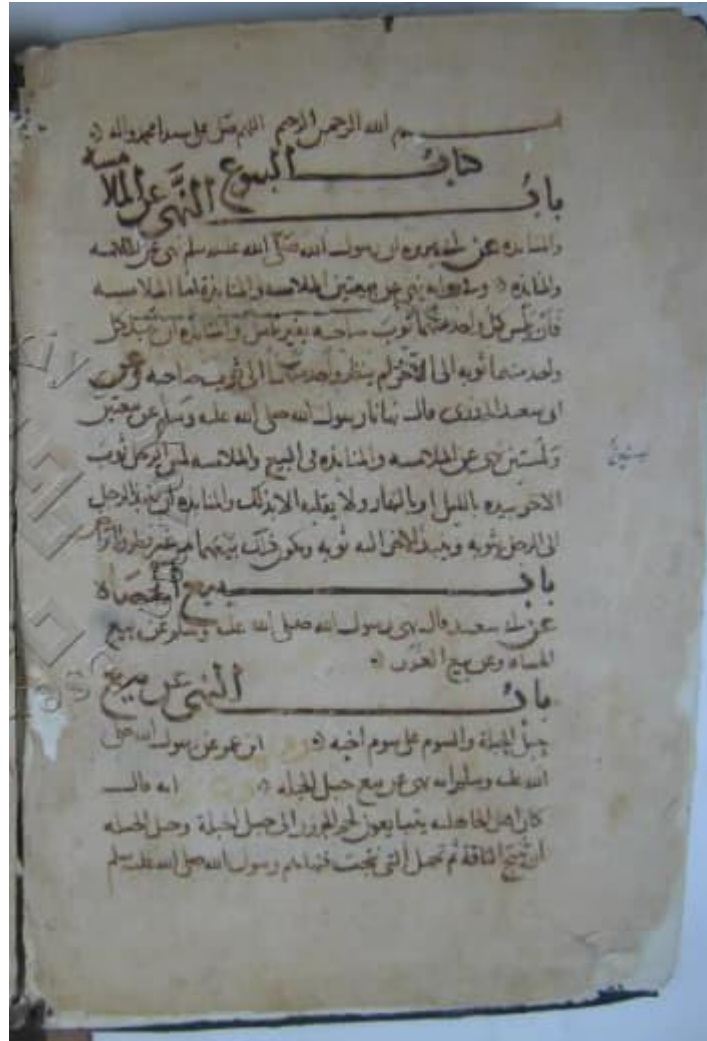 بسم الله الرحمن الرحيم اللهم صل على سيدنا محمد واله
كتاب البيوع
باب النهي عن الملامسة
والمنابذه عن ابي هريره ان رسول الله صلى الله عليه سلم نهى عن الملامسه
والمنابذه وفي روايه نهى عن بيعتين الملامسه والمنابذة اما الملامسه
فان يلمس كل واحد منهما ثوب صاحبه بغير تامل والمنابذه ان ينبذ كل
واحد منهما ثوبه الى الاخر لم ينظر واحد منهما الى ثوب صاحبه وعن
ابي سعيد الخدري قال نهانا رسول الله صلى الله عليه وسلم عن بيعتين
ولبستين نهى عن الملامسه والمنابذه في البيع والملامسه لمس الرجل ثوب
الاخر بيده بالليل او بالنهار ولا يقلبه الا بذلك والمنابذه ان ينبذ الرجل
الى الرجل بثوبه وينبذ الاخر اليه ثوبه ويكون ذلك بيعهما من غير نظر ولا تراض
باب بيع الحصاه
عن ابي سعيد قال نهى رسول الله صلى الله عليه وسلم عن بيع
الحصاه وعن بيع الغرر
باب النهي عن بيع
حبل الحبلة والسوم على سوم اخيه ابن عمر عن رسول الله صلى
الله عليه وسلم انه نهى عن بيع حبل الحبله انه قال
كان اهل الجاهليه يتبايعون لحم الجزور الى حبل الحبلة وحبل الحبله
ان تنتج الناقة ثم تحمل التي نتجت فنهاهم رسول الله صلى الله عليه سلم